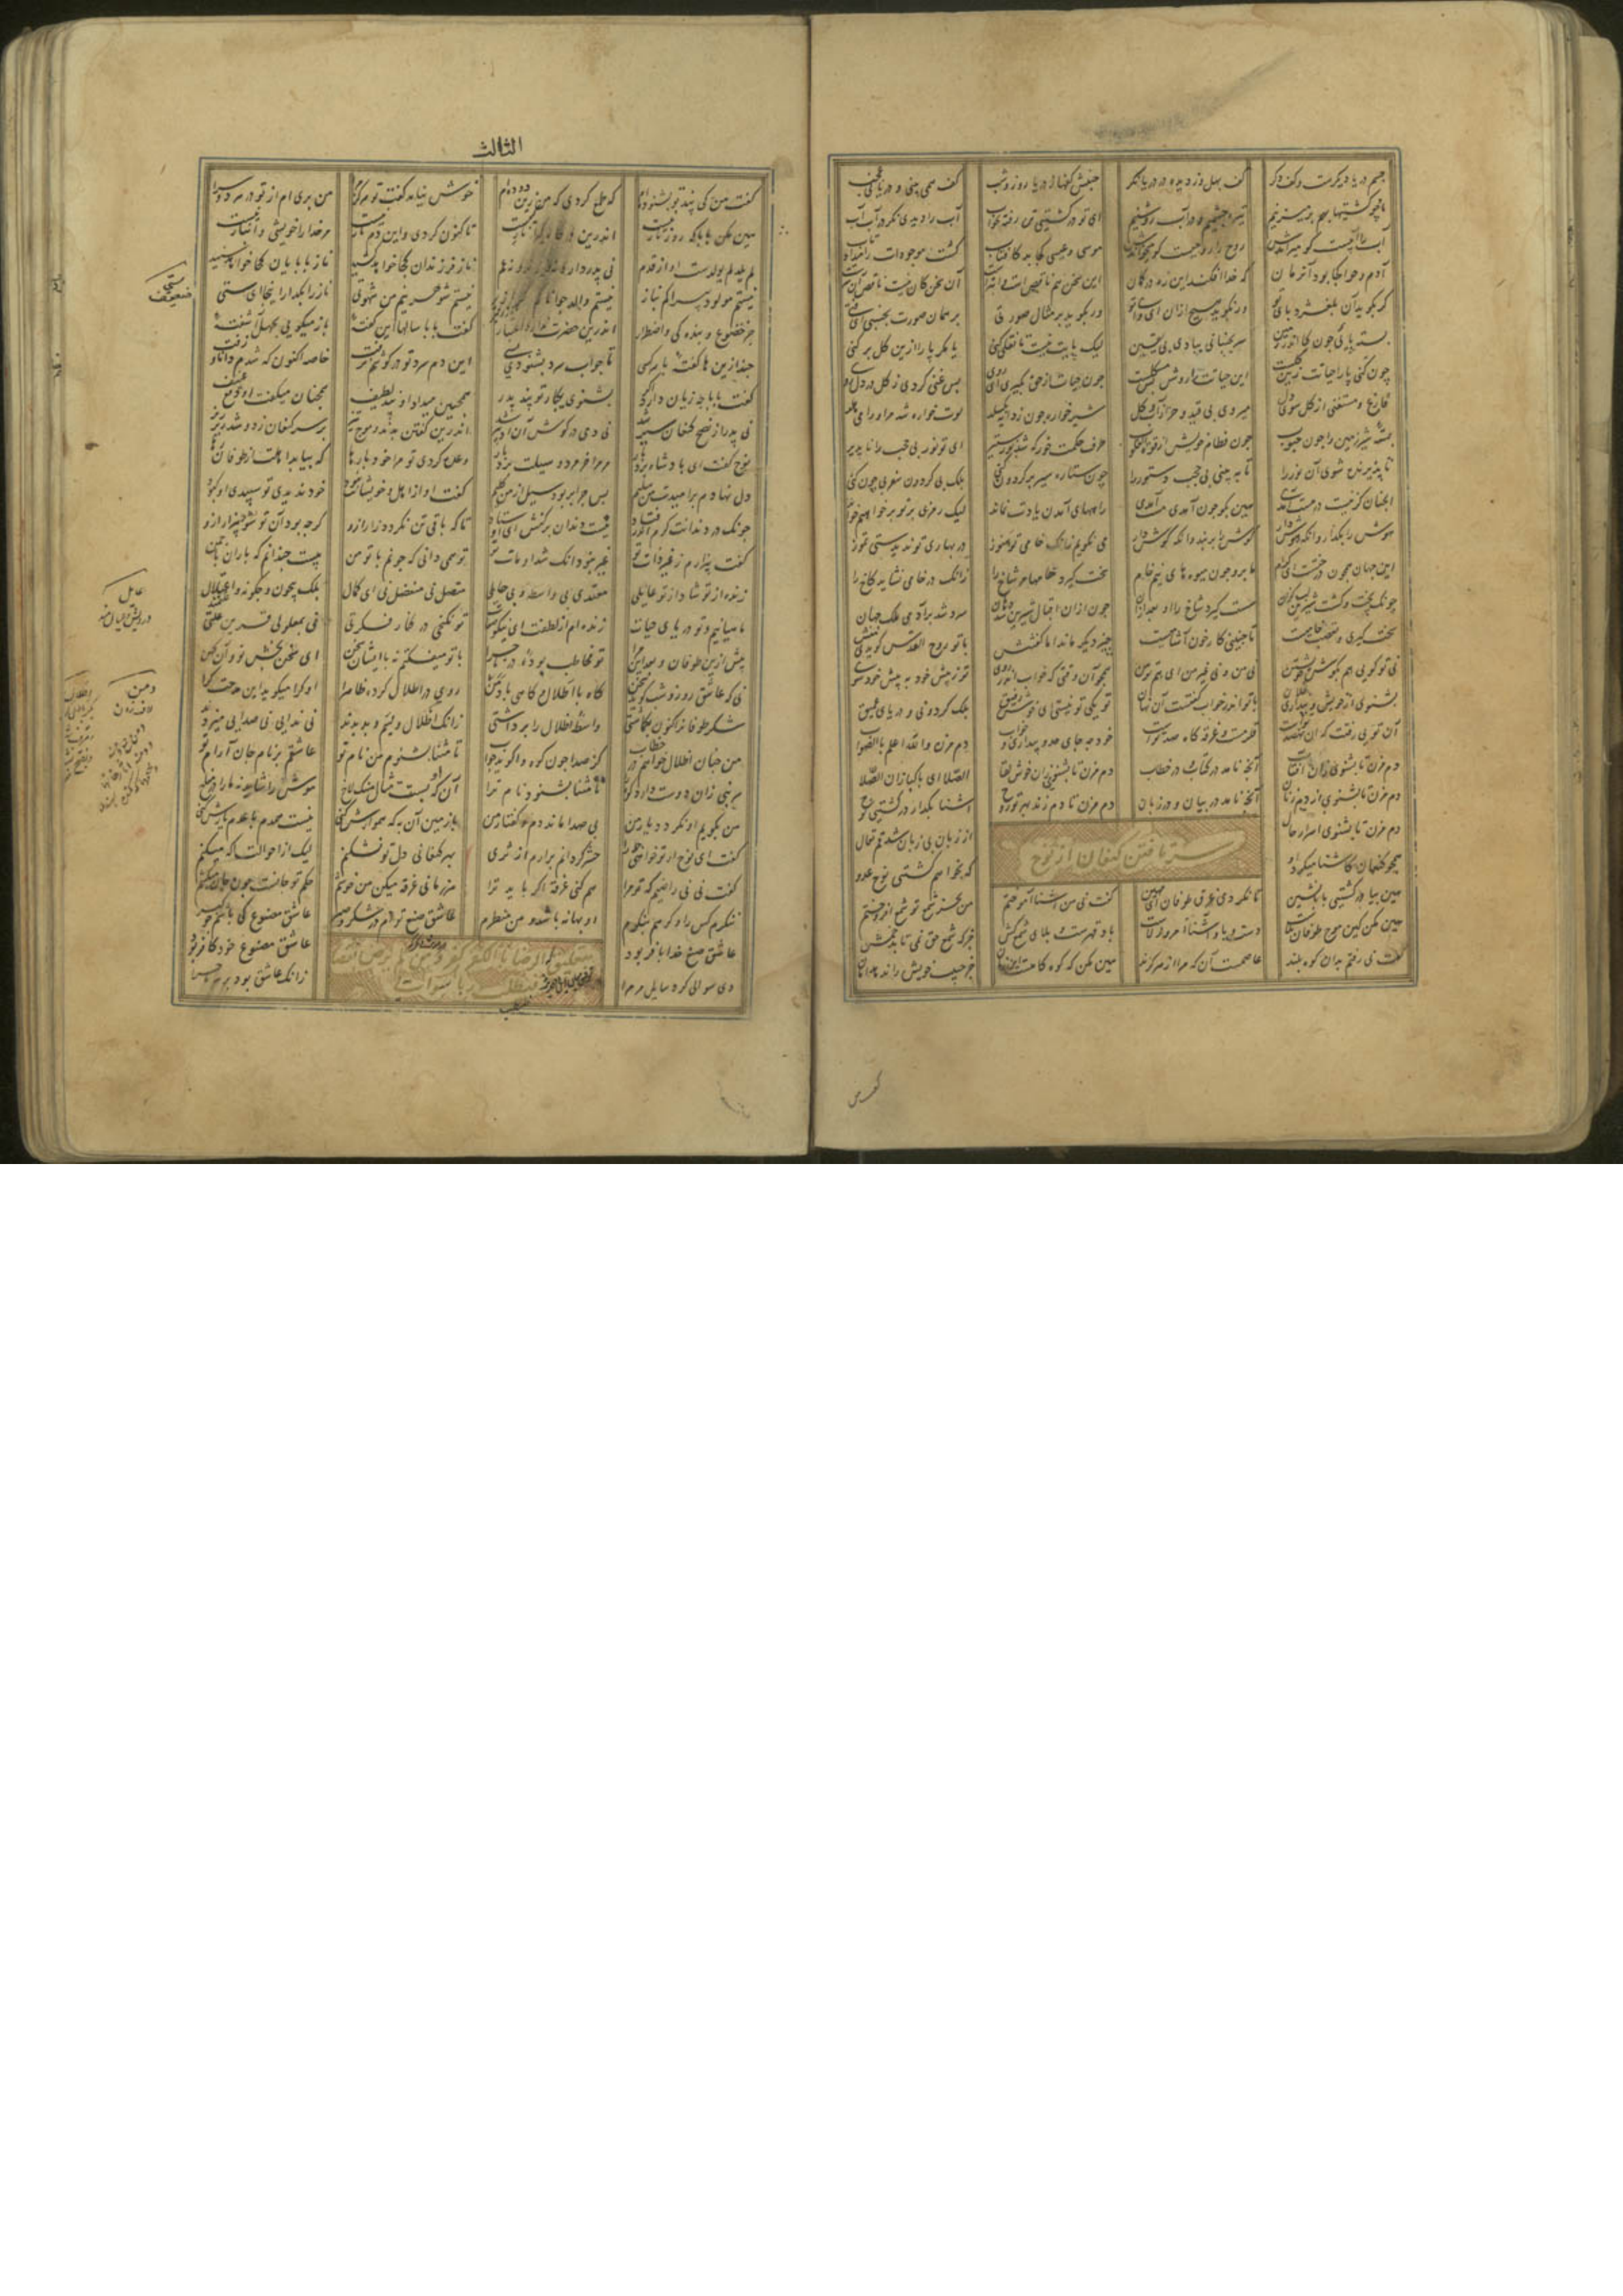 چشم دریا دیگرست و کف دگر کف بهل وز دیده در دریا نگر جنبش کفها ز دریا روز و شب کف همی بینی و دریا نی عجب
ما چو کشتیها بهم بر میزنیم تیره چشمیم و در آب روشنیم ای تو در کشتی تن رفته بخواب آب را دیدی نگر در آب آب
آب را آبیست کو میراندش روح را روحیست کو میخواندش موسی و عیسی کجا بد کافتاب کشت موجودات را میداد آب
آدم و حوا کجا بود آن زمان که خدا افکند این زه در کمان این سخن هم ناقص است و ابترست آن سخن کان نیست ناقص آن سرست
گر بگوید زان بلغزد پای تو ور نگوید هیچ ازان ای وای تو ور بگوید بر مثال صورتی بر همان صورت بچسبی ای فتی
بسته پایی چون گیا اندر زمین سر بجنبانی ببادی بی یقین لیک پایت نیست تا نقلی کنی یا مگر پا را ازین گل بر کنی
چون کنی پا را حیاتت زین گلست این حیاتت را روش بس مشکلست چون حیات از حق بگیری ای روی بس غنی گردی ز گل در دل روی
فارغ و مستغنی از گل سوی دل میروی بی قید و حر از آب و گل شیر خواره چون ز دایه بگسلد لوت خواره شد مر او را می هلد
بسته شیر زمین را چون حبوب جون فطام خویش از قوت القلوب حرف حکمت خور که شد نور ستیر ای تو نور بی حجب را ناپذیر
تا پذیرنده شوی آن نور را تا به بینی بی حجب مستور را چون ستاره سیر بر گردون کنی بلک بی گردون سفر بی چون کنی
انچنان کز نیست در هست آمدی هین بگو چون آمدی مست آمدی راههای آمدن یادت نماند لیک رمزی بر تو بر خواهیم خواند
هوش را بگذار وانگه هوش دار گوش را بر بند وانگه گوش دار می نگویم زانک خامی تو هنوز در بهاری تو ندیدستی تموز
این جهان همچون درختست ای کرام ما برو چون میوه های نیم خام سخت گیرد خامها مر شاخ را زانک در خامی نشاید کاخ را
چونک پخت و گشت شیرین لب گزان سست گیرد شاخ را او بعد ازان چون ازان اقبال شیرین شد دهان سرد شد بر آدمی ملک جهان
سخت گیری و تعصب خامیست تا جنینی کار خون آشامیست چیز دیگر ماند اما گفتنش با تو روح القدس گوید نی منش
نی تو گویی هم بگوش خویشتن نی من و نی غیر من ای هم تو من همچو آن وقتی که خواب اندر روی تو ز پیش خود به پیش خود شوی
بشنوی از خویش و پنداری فلان با تو اندر خواب گفتست آن نهان تو یکی تو نیستی ای خوش رفیق بلک گردونی و دریای عمیق
آن تویی زفتت که آن نهصد توست قلزمست و غرقه گاه صد توست خود چه جای حد بیداری و خواب دم مزن والله اعلم بالصواب
دم مزن تا بشنوی زان آفتاب آنچه نامد در کتاب و در خطاب دم مزن تا بشنوی زان خوش لقا الصلا ای پاکبازان الصلا
دم مزن تا بشنوی از دم زنان آنچه نامد در بیان و در زبان دم مزن تا دم زند بهر تو روح آشنا بگذار در کشتی نوح
دم مزن تا بشنوی اسرار حال از زبان بی زبان شد تم تعال
همچو کنعان کاشنا میکرد او که نخواهم کشتی نوح عدو
سر تافتن کنعان از نوح
هین بیا در کشتی بابا نشین تا نگردی غرق طوفان ای مهین گفت نی من آشنا آموختم من بجز شمع تو شمع افروختم
هین مکن کین موج طوفان بلاست دست و پا و آشنا امروز لاست باد قهرست و بلای شمع کش جز که شمع حق نمی تابد خمش
گفت نی رفتم بدان کوه بلند عاصمست آن که مرا از هر گزند هین مکن که کوه کاهست این زمان جز حبیب خویش را ندهد امان
الثالث
گفت من کی پند تو بشنوده ام که طمع کردی که من زین دوده ام خوش نیامد گفت تو هرگز مرا من بری ام از تو در هر دو سرا
هین مکن بابا که روز ناز نیست تا کنون کردی و این دم نازکیست مر خدا را خویشی و انباز نیست
لم یلد لم یولدست او از قدم نی پدر دارد نه فرزند و نه عم ناز فرزندان کجا خواهد کشید ناز بابایان کجا خواهد شنید
نیستم مولود پیرا کم بناز نیستم والد جوانا کم گراز نیستم شوهر نیم من شهوتی ناز را بگذار اینجا ای ستی
جز خضوع و بندگی و اضطرار اندرین حضرت ندارد اعتبار گفت بابا سالها این گفته باز میگویی بجهل آشفته
چند ازین ها گفته با هر کسی تا جواب سرد بشنودی بسی این دم سرد تو در گوشم نرفت خاصه اکنون که شدم دانا و زفت
گفت بابا چه زیان دارد اگر بشنوی یکبار تو پند پدر همچنین میداد او پند لطیف همچنان میگفت او دفع عنیف
نی پدر از نصح کنعان سیر شد نی دمی در گوش آن ادبیر شد اندرین گفتن بدند و موج تیز بر سر کنعان زد و شد ریز ریز
نوح گفت ای پادشاه بردبار مر مرا خر مرد و سیلت برد بار وعده کردی تو مرا خود بارها که بیابد اهلت از طوفان رها
دل نهادم بر امیدت من سلیم پس چرا بربود سیل از من گلیم گفت او از اهل و خویشانت نبود خود ندیدی تو سپیدی او کبود
چونک در دندانت کرم افتاد نیست دندان بر کنش ای اوستاد تا که باقی تن نگردد زار ازو گرچه بود آن تو شو بیزار ازو
گفت بیزارم ز غیر ذات تو غیر نبود آنک شد او مات تو تو همی دانی که چونم با تو من بیست چندانم که باران با چمن
زنده از تو شاد از تو عائلی مغتذی بی واسطه و بی حایلی متصل نی منفصل نی ای کمال بلک بیچون و چگونه و اعتلال
ماهیانیم و تو دریای حیات زنده ایم از لطفت ای نیکو صفات تو نگنجی در کنار فکرتی نی بمعلولی قرین علتی
پیش ازین طوفان و بعد این مرا تو مخاطب بوده در ماجرا با تو میگفتم نه با ایشان سخن ای سخن بخش نو و آن کهن
نی که عاشق روز و شب گوید سخن گاه با اطلال گاهی با دمن روی در اطلال کرده ظاهرا او کرا میگوید این مدحت کرا
شکر طوفانرا کنون بگماشتی واسطه اطلال را برداشتی زانک اطلال و لئیم و بد بدند نی ندایی نی صدایی میزدند
من چنان اطلال خواهم در خطاب کز صدا چون کوه وا گوید جواب تا مثنا بشنوم من نام تو عاشقم بر نام جان آرام تو
هر نبی زان دوست دارد کوه را تا مثنا بشنود نام ترا آن که پست مثال سنگلاخ موش را شاید نه ما را در مناخ
من بگویم او نگردد یار من بی صدا ماند دم گفتار من با زمین آن به که هموارش کنی نیست همدم با عدم یارش کنی
گفت ای نوح ار تو خواهی جمله را حشر گردانم برارم از ثری بهر کنعانی دل تو نشکنم لیک از احوالت آگه میکنم
گفت نی نی راضیم که تو مرا هم کنی غرقه اگر باید ترا هر زمانی غرقه میکن من خوشم حکم تو جانست چون جان میکشم
ننگرم کس را و گر هم بنگرم او بهانه باشد و من منظرم عاشق صنع توام در شکر و صبر عاشق مصنوع کی باشم چو گبر
عاشق صنع خدا با فر بود عاشق مصنوع خود کافر بود
دی سوالی کرد سایل مر مرا زانک عاشق بود بر ماجرا